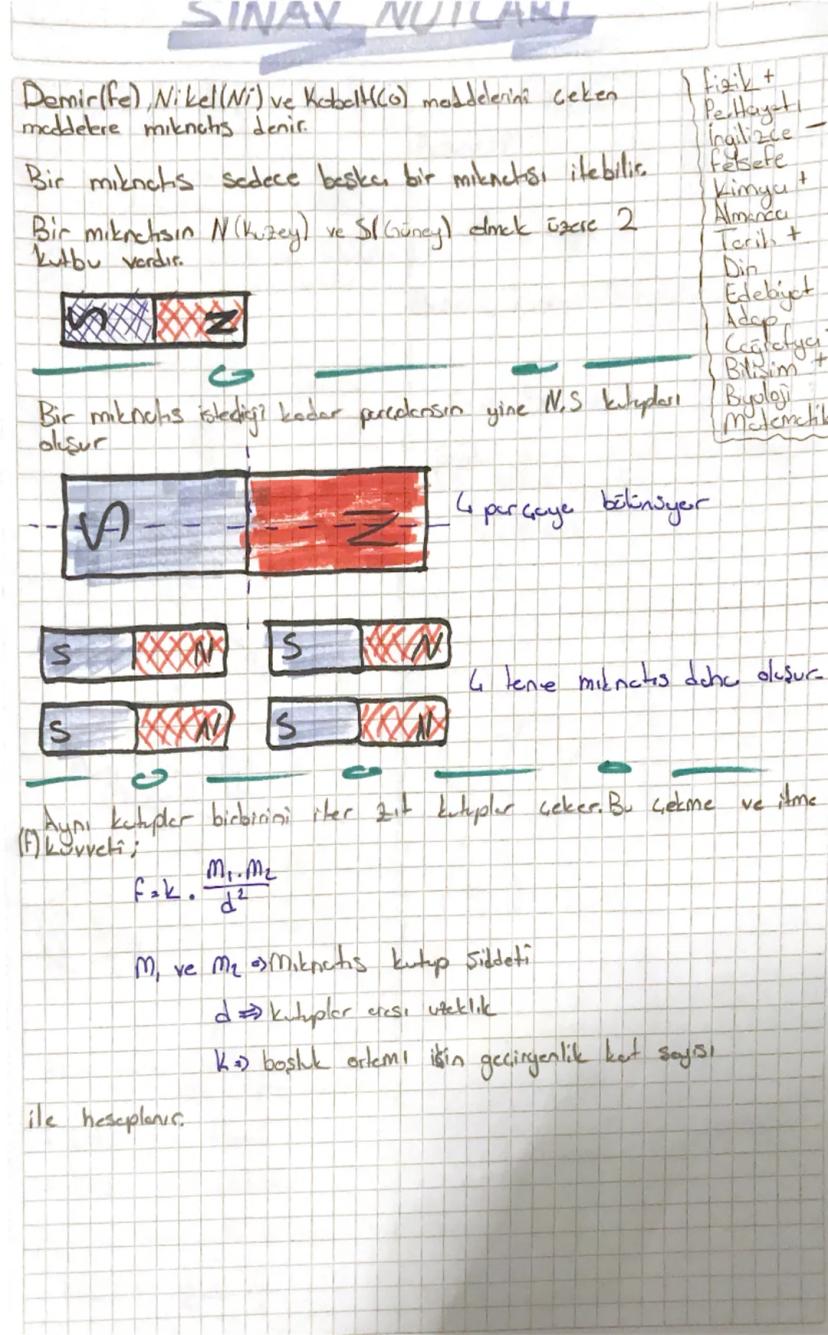 SINAV NOTLARI
Demir(fe), Nikel(Ni) ve Kobalt(Co) maddelerini çeken
maddelere mıknatıs denir.
Bir mıknatıs sadece başka bir mıknatısı itebilir.
Bir mıknatısın N(Kuzey) ve S(Güney) olmak üzere 2
kutbu vardır.
S N
Bir mıknatıs istediği kadar parçalansın yine N,S kutupları
oluşur
S N
4 parçaya bölünüyor
S N S N
4 tane mıknatıs daha oluşur.
S N S N
Aynı kutuplar birbirini iter zıt kutuplar çeker. Bu çekme ve itme
(F) kuvveti;
f=k. m₁.m₂/d²
m₁ ve m₂ => Mıknatıs kutup şiddeti
d => kutuplar arası uzaklık
k => boşluk ortamı için geçirgenlik kat sayısı
ile hesaplanır.
fizik +
Pe.Hayatı
İngilizce -
felsefe
Kimya +
Almanca
Tarih +
Din
Edebiyat
Adap
Coğrafya
Bilişim +
Byoloji
Matematik